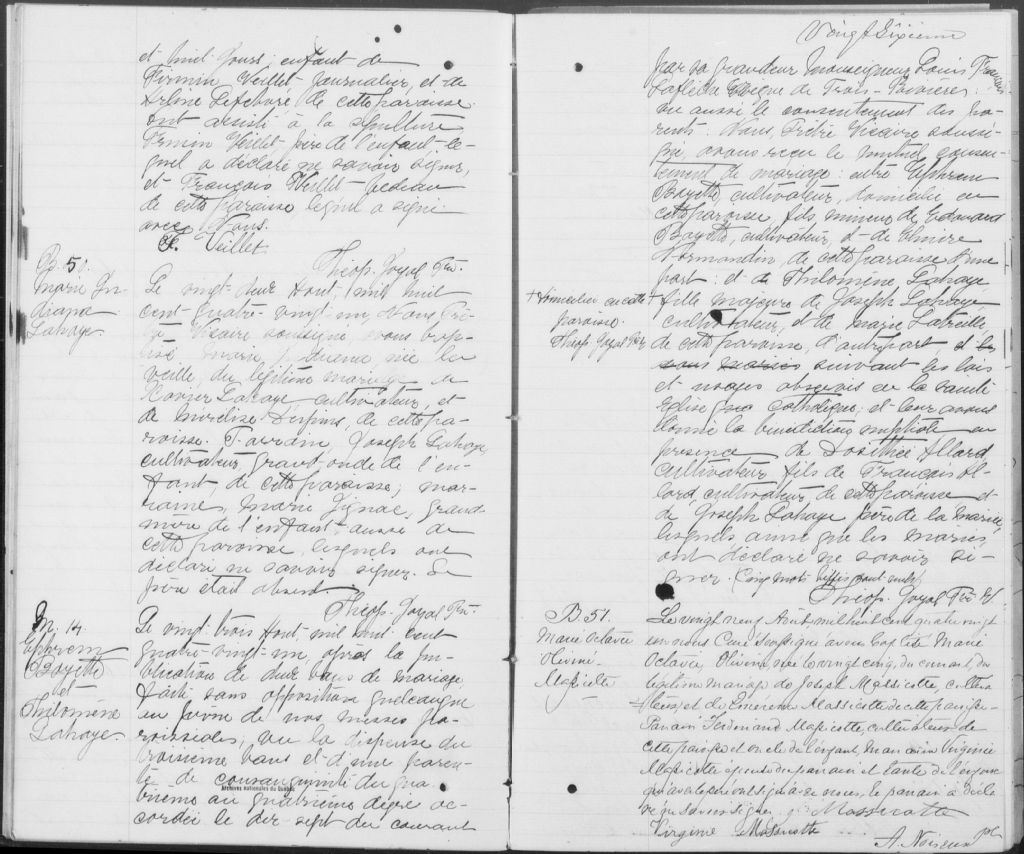 et huit jours, enfant de
Firmin Veillet, journalier, et de
Arline Lefebvre de cette paroisse.
Ont assisté à la sépulture
Firmin Veillet père de l'enfant le-
quel a déclaré ne savoir signer,
et François Veillet bedeau
de cette paroisse, lequel a signé
avec Nous.
F. Veillet
Théop. Joyal Ptre
B. 50.
Marie In-
diana
Lahaye.
Le vingt-deux Août, mil huit
cent-quatre-vingt-un, Nous Prê-
tre Vicaire soussigné, avons bap-
tisé Marie Indiana née la
veille, du légitime mariage de
Xavier Lahaye cultivateur, et
de de cette pa-
roisse. Parrain, Joseph Lahaye,
cultivateur, grand oncle de l'en-
fant, de cette paroisse; mar-
raine, Marie Gignac, grand
mère de l'enfant aussi de
cette paroisse, lesquels ont
déclaré ne savoir signer. Le
père était absent.
Théop. Joyal Ptre
M. 14
Ephrem
Bayette
et
Philomène
Lahaye.
Le vingt-trois Août, mil huit cent
quatre-vingt-un, après la pu-
blication de deux bans de mariage
faite sans opposition quelconque
au prône de nos messes pa-
roissiales; vu la dispense du
troisième bans et d'une paren-
té de consanguinité du qua-
trième au quatrième degré ac-
cordée le dix-sept du courant
Archives nationales du Québec
Vingt Sixième
par sa grandeur Monseigneur Louis François
Laflèche Evêque de Trois-Rivières:
vu aussi le consentement des pa-
rents: Nous, Prêtre Vicaire soussi-
gné, avons reçu le mutuel consen-
tement de mariage: entre Ephrem
Bayette, cultivateur, domicilié en
cette paroisse, fils mineur de Edouard
Bayette, cultivateur, et de Elmire
Normandin de cette paroisse d'une
part: et de Philomène Lahaye,
+ domiciliée en cette
paroisse.
Théop. Joyal Ptre
+ fille majeure de Joseph Lahaye
cultivateur, et de Marie Latreille
de cette paroisse, d'autre part, et les
avons mariés suivant les lois
et usages observés en la sainte
Eglise Catholique; et leur avons
donné la bénédiction nuptiale en
présence de Dosithée Allard,
cultivateur fils de François Al-
lard, cultivateur, de cette paroisse et
de Joseph Lahaye père de la mariée,
lesquels ainsi que les mariés
ont déclaré ne savoir si-
gner. Cinq mots biffés sont nuls.
Théop. Joyal Ptre V
B 51.
Marie Octavie
Olivine
Massicotte
Le vingt neuf Août, mil huit cent quatre vingt
un nous Curé soussigné avons baptisé Marie
Octavie Olivine née le vingt cinq du courant, du
légitime mariage de Joseph Massicotte, cultiva
teur, et de Massicotte de cette paroisse.
Parrain Ferdinand Massicotte, cultivateur de
cette paroisse et oncle de l'enfant, Marraine Virginie
Massicotte épouse du parrain et tante de l'enfant
qui avec le père ont signé avec nous, le parrain a décla
ré ne savoir signer. Massicotte
Virginie Massicotte
A. Noiseux Ptre